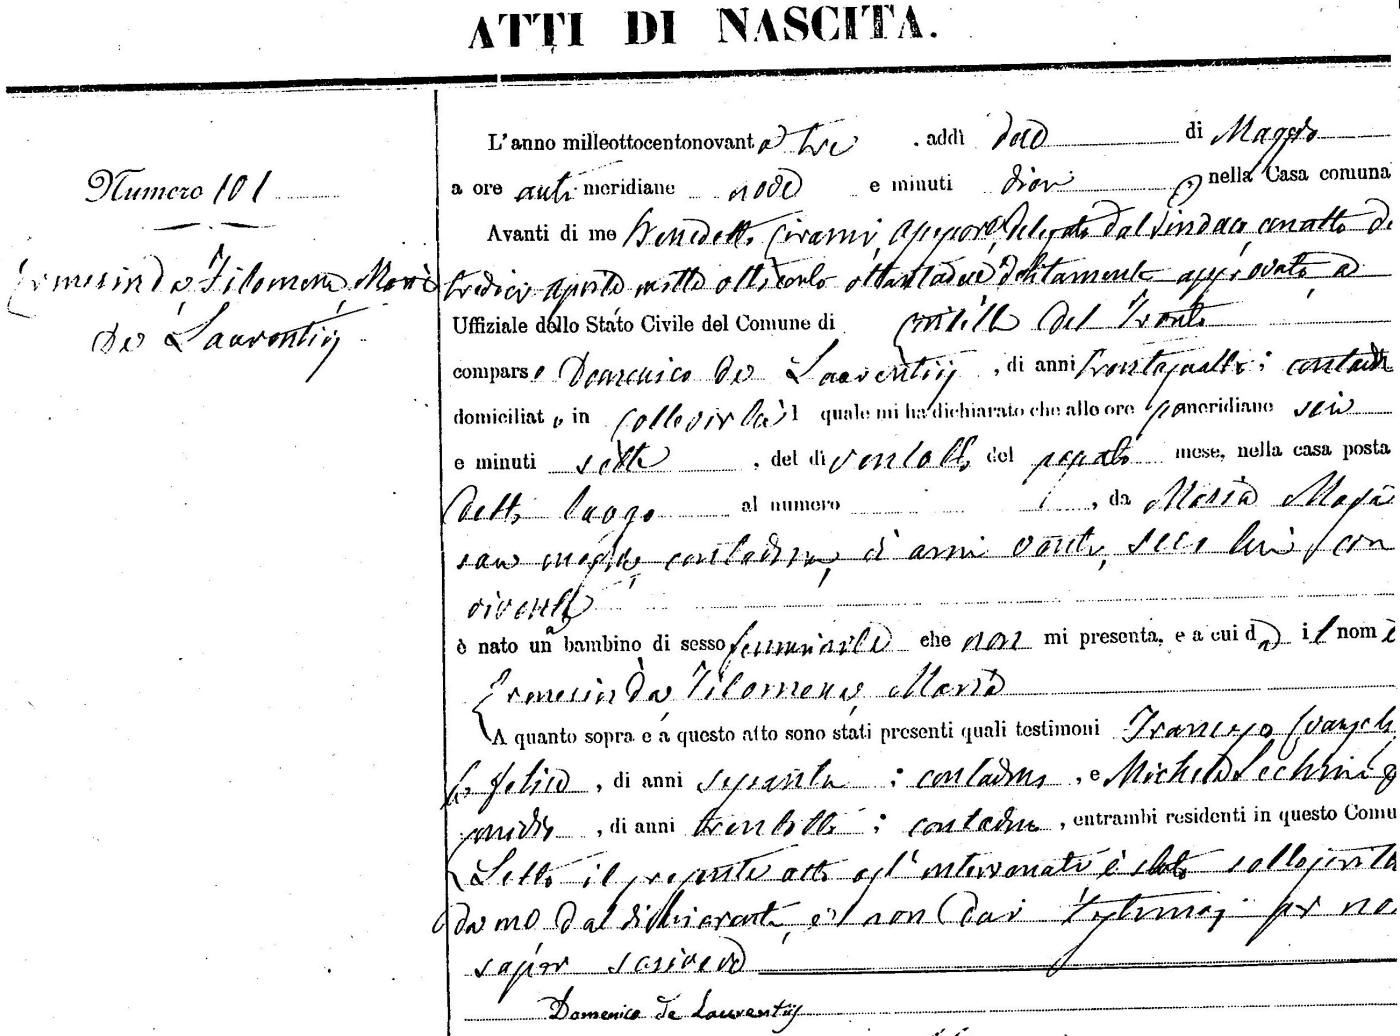 ATTI DI NASCITA.
Numero 101
Ermesinda Filomena Maria
De Laurentiis
L'anno milleottocentonovantatre, addì due di Maggio
a ore anti meridiane nove e minuti dieci, nella Casa comuna
Avanti di me Benedetto Assessore Delegato dal Sindaco con atto de
tredici aprile mille ottocento ottantadue debitamente approvato,
Uffiziale dello Stato Civile del Comune di del Tronto
comparso Domenico De Laurentiis, di anni trentaquattro; contadi
domiciliato in il quale mi ha dichiarato che alle ore pomeridiane sei
e minuti sette, del dì ventotto del passato mese, nella casa posta
detto luogo al numero , da Maria
sua moglie contadina, di anni venti, seco lui con
vivente
è nato una bambino di sesso femminile che non mi presenta, e a cui dà il nome
Ermesinda Filomena Maria
A quanto sopra e a questo atto sono stati presenti quali testimoni Francesco
fu Felice, di anni sessanta; contadino, e Michele
, di anni trentotto; contadino, entrambi residenti in questo Comu
Letto il presente atto agl'intervenuti è stato sottoscritto
da me dal dichiarante, e non dai testimoni per no
saper scrivere
Domenico de Laurentiis